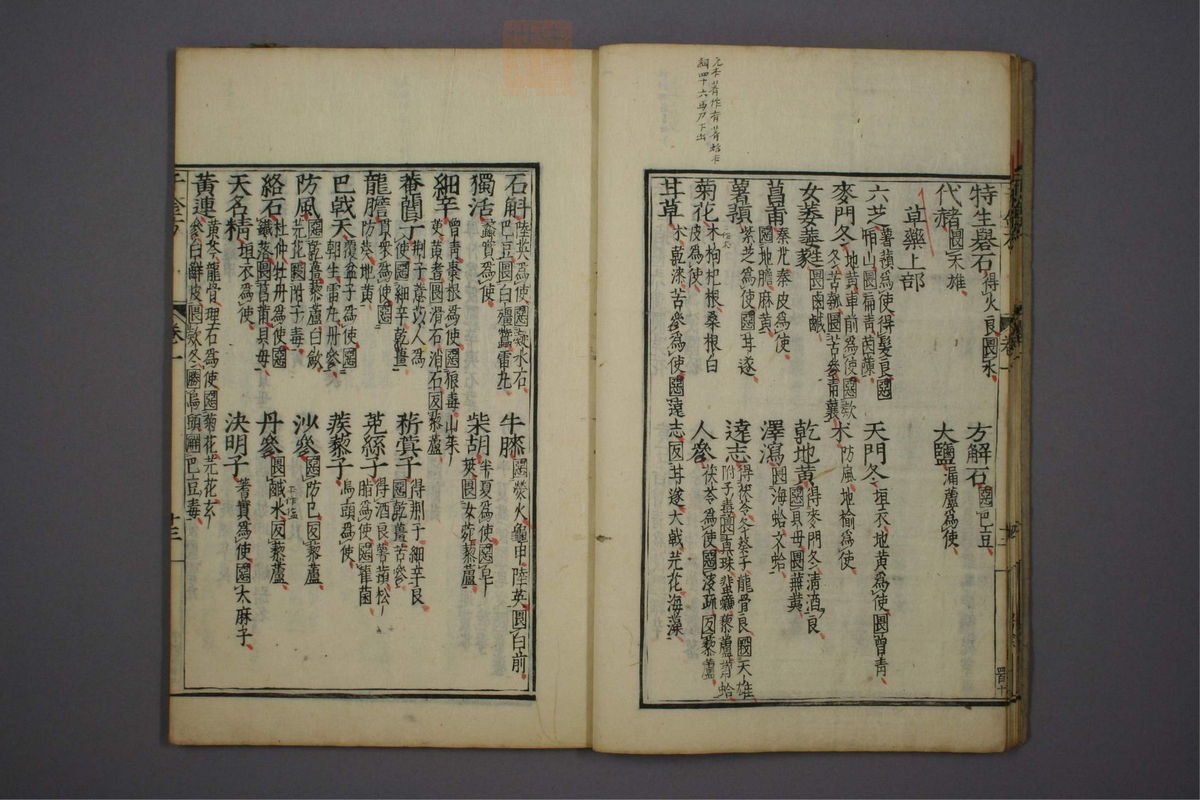 特生礜石 得火良 畏水
方解石 惡巴豆
代赭 畏天雄
大鹽 漏蘆爲使
草藥上部
六芝 薯蕷爲使 得髮良 惡恒山 畏扁青 茵蔯
天門冬 垣衣地黃爲使 畏曾青
麥門冬 地黃車前爲使 惡款冬苦瓠 畏苦參青蘘
朮 防風地榆爲使
女萎萎蕤 畏鹵鹹
乾地黃 得麥門冬清酒良 惡貝母 畏蕪荑
菖蒲 秦艽秦皮爲使 惡地膽麻黃
澤瀉 畏海蛤文蛤
薯蕷 紫芝爲使 惡甘遂
遠志 得茯苓冬葵子龍骨良 畏真珠蜚蠊藜蘆齊蛤
菊花 朮枸杞根桑根白皮爲使
人參 茯苓爲使 惡溲疏 反藜蘆
甘草 朮乾漆苦參爲使 惡遠志 反甘遂大戟芫花海藻
石斛 陸英爲使 惡凝水石巴豆 畏白殭蠶雷丸
牛膝 惡熒火龜甲陸英 畏白前
獨活 蠡實爲使
柴胡 半夏爲使 惡皂莢 畏女菀藜蘆
細辛 曾青棗根爲使 惡狼毒山茱萸黃耆 畏滑石消石 反藜蘆
菴䕡子 荊子薏苡人爲使 惡細辛乾薑
菥蓂子 得荊子細辛良 惡乾薑苦參
龍膽 貫衆爲使 惡防葵地黃
菟絲子 得酒良 薯蕷松脂爲使 惡雚菌
巴戟天 覆盆子爲使 惡朝生雷丸丹參
蒺藜子 烏頭爲使
防風 惡乾薑藜蘆白斂芫花 畏附子毒
沙參 惡防巳 反藜蘆
絡石 杜仲牡丹爲使 惡鐵落 畏菖蒲貝母
丹參 畏鹹水 反藜蘆
天名精 垣衣爲使
決明子 蓍實爲使 惡大麻子
黃連 黃芩龍骨理石爲使 惡菊花芫花玄參白蘚皮 畏款冬 勝烏頭 解巴豆毒
千金方
卷一
十三